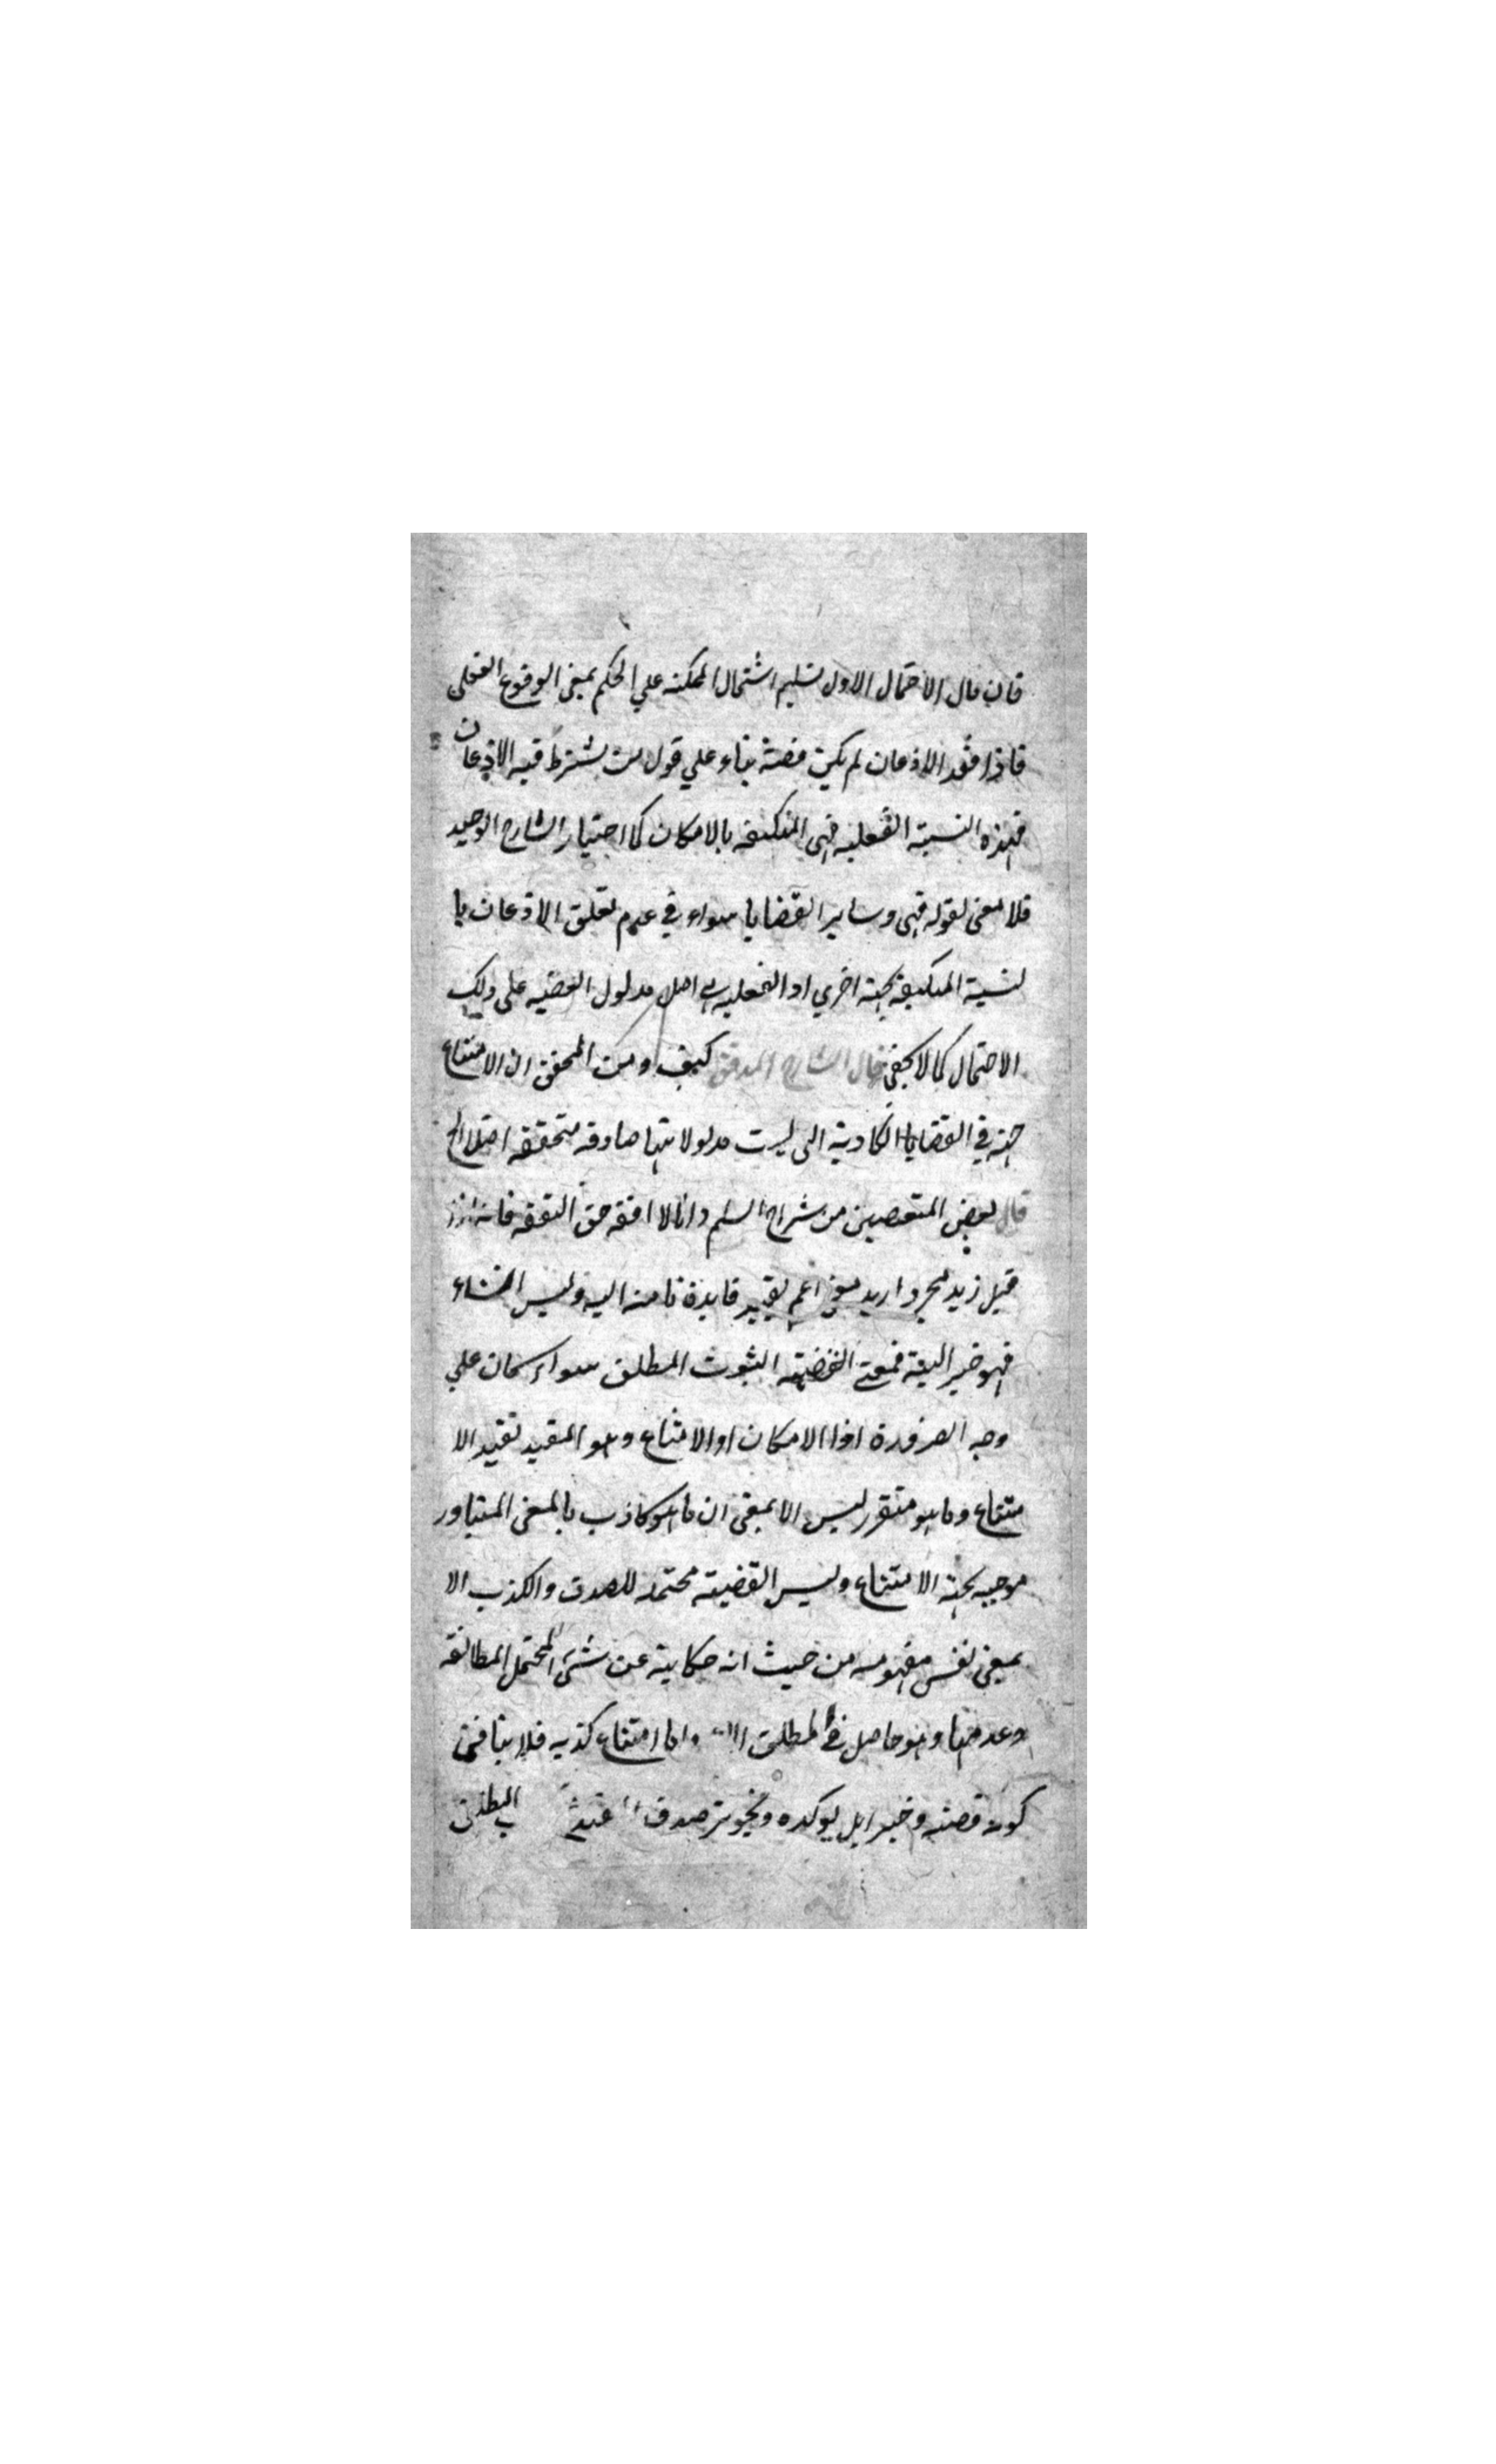 فان مال الاحتمال الاول تسليم اشتمال الممكنه علي الحكم بمعنى الوقوع الفعلى
فاذا فقد الاذعان لم يكن قضية بناء علي قول من يشترط فيه الاذعان
فهذه النسبته الفعليه فهى المتكيفه بالامكان كما اختيار الشارح الوحيد
فلا معنى لقوله فهى وساير القضايا سواء فى عدم تعلق الاذعان با
لنسبة المتكيفة بجهة اخري او الفعلية اصل مدلول القضيه على ذلك
الاحتمال كما لا يخفى قال الشارح المدقق كيف ومن المحقق ان الامتناع
جهة في القضايا الكاذبة التى ليست مدلولاتها صادقه متحققه اصلا الخ
قال بعض المتعصبين من شراح السلم وانا لا افقه حق التفقه فانه اذا
قيل زيد اريد معنى اعم بقييد فايدة تامة اليه وليس انشاء
فهو خبر البتة فمعنى القضية الثبوت المطلق سواء كان علي
وجه الضرورة او الامكان او الامتناع وهو المقيد بقيد الا
متناع وما هو متقرر ليس الا بمعنى ان ما هو كاذب بالمعنى المتبادر
موجبه بجهة الامتناع وليس القضيته محتمله للصدق والكذب الا
بمعنى نفس مفهومه من حيث انه حكاية عن شئ المحتمل المطابقة
وعدمها وهو حاصل في المطلق واما امتناع كذبه فلا ينافى
كونه قضية وخبرا بل يوكده وتجويز صدق